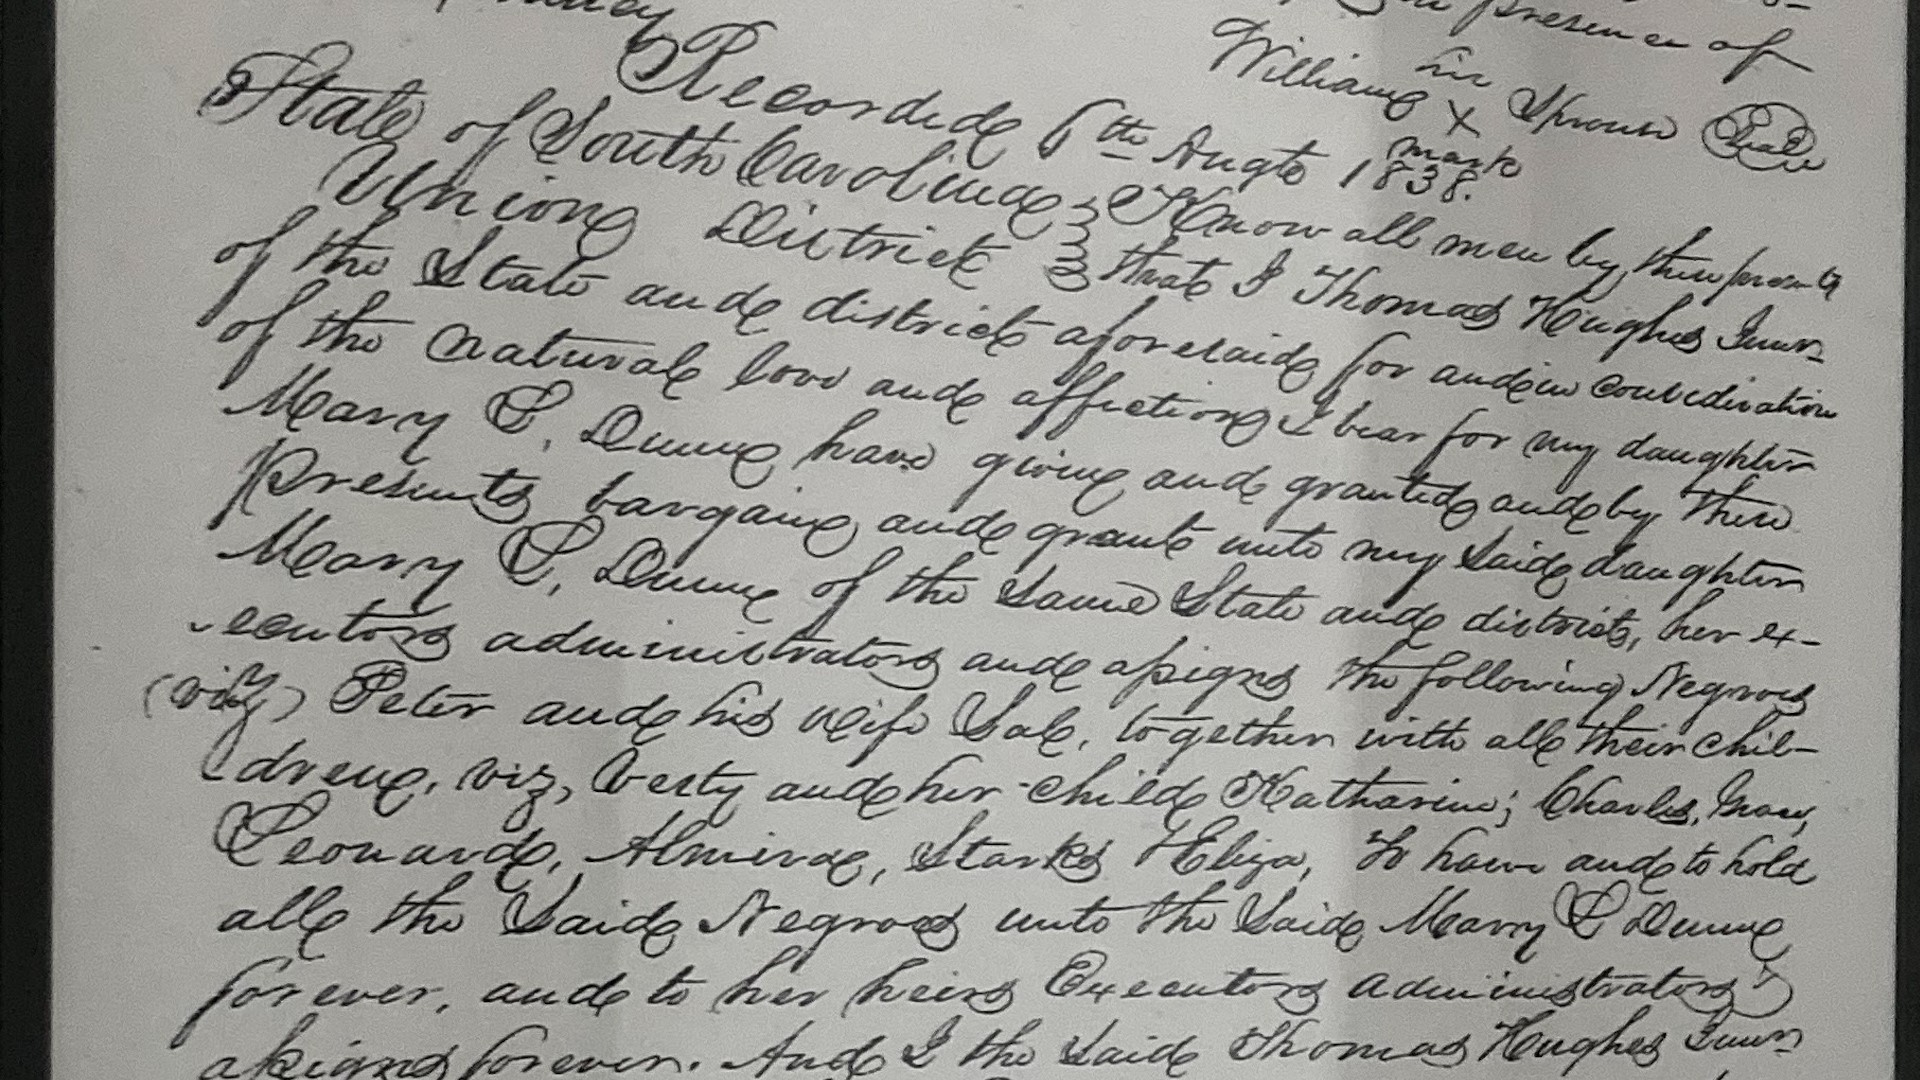 presence of
his
William X Sprouse Seal
mark
Recorded 6th Augt 1838.
State of South Carolina } Know all men by these presents
Union District } that I Thomas Hughes Junr
of the State and district aforesaid for and in consideration
of the natural love and affection I bear for my daughter
Mary S. Dunn have given and granted and by these
presents bargain and grant unto my Said daughter
Mary S. Dunn of the Same State and district, her ex-
ecutors administrators and assigns the following Negroes
(viz) Peter and his wife Sal, together with all their chil-
dren, viz, Besty and her child Katharine; Charles,
Leonard, Almira, Starks Eliza, To have and to hold
all the Said Negroes unto the Said Mary S Dunn
forever, and to her heirs Executors administrators
assigns forever. And I the Said Thomas Hughes Junr